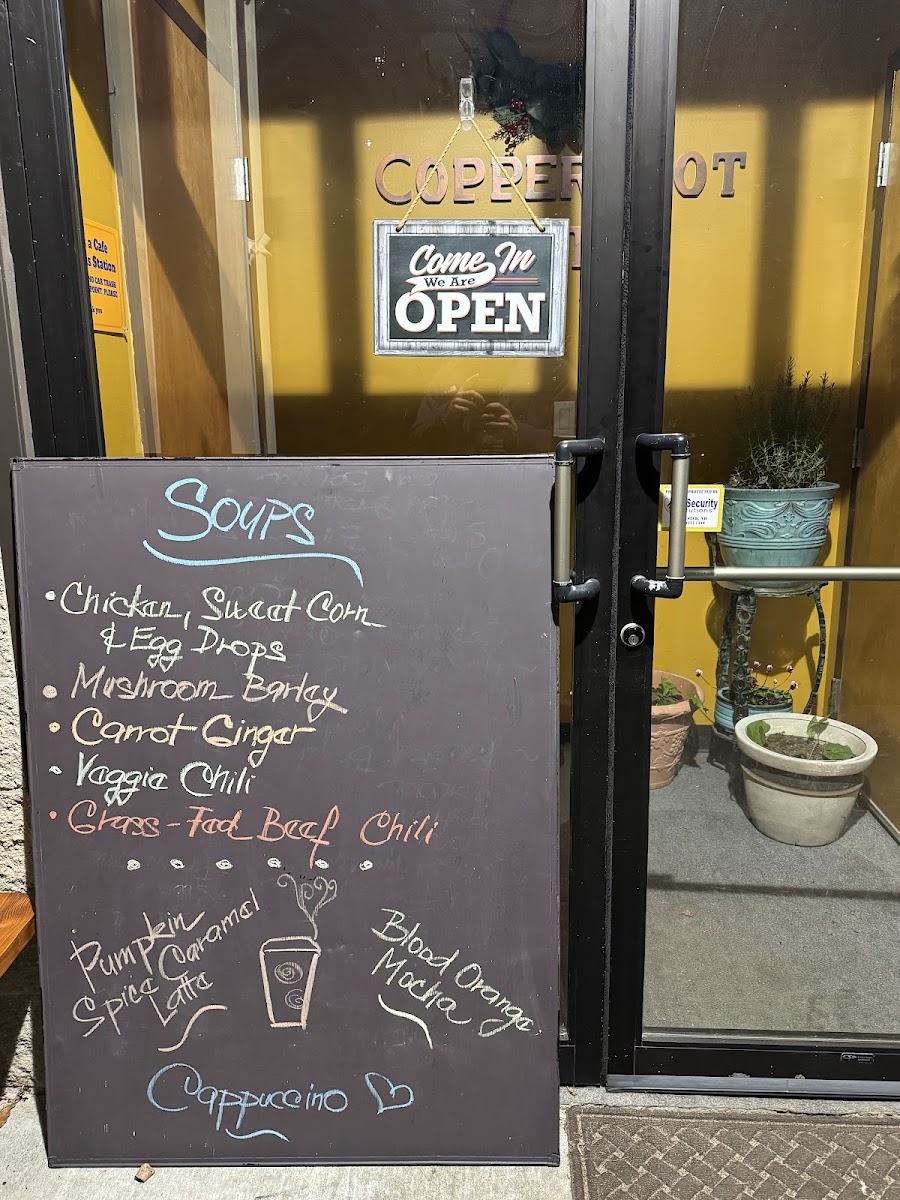 COPPER OT
a Cafe
s Station
Come In
We Are
OPEN
Security
utions
SOUPS
• Chicken, Sweet Corn
& Egg Drops
• Mushroom Barley
• Carrot Ginger
• Veggie Chili
• Grass-Fed Beef Chili
Pumpkin
Spice Caramel
Latte
Blood Orange
Mocha
Cappuccino